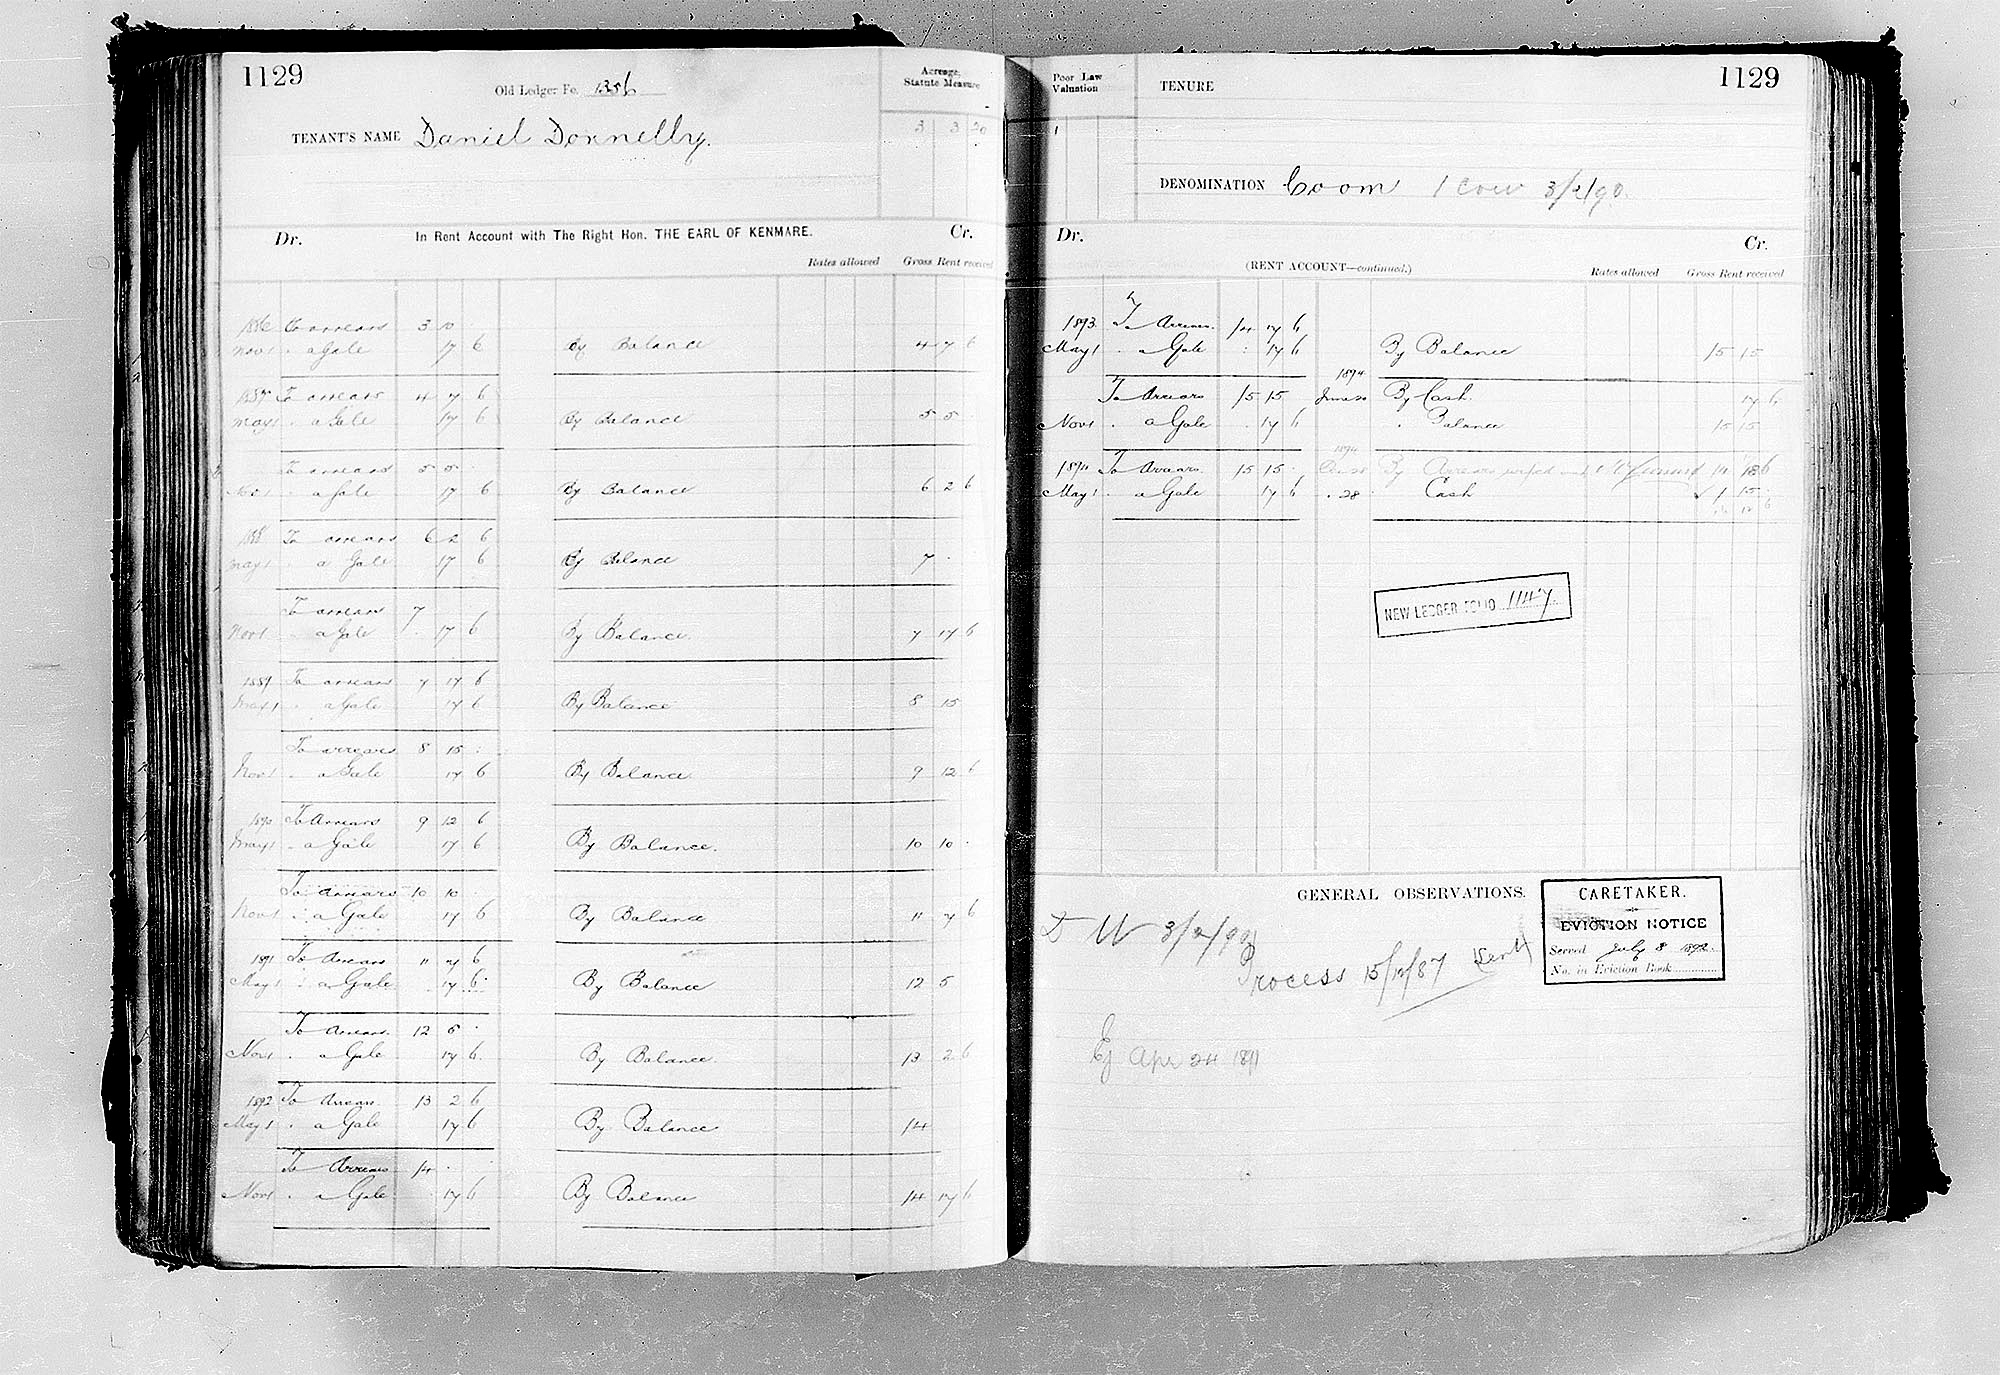 1129
Old Ledger Fo. 1356
Acreage, Statute Measure
TENANT'S NAME Daniel Donnelly.
3 3 20
Dr. In Rent Account with The Right Hon. THE EARL OF KENMARE. Cr.
Rates allowed Gross Rent received
1886 To arrears 3 10
Nov 1 " a Gale 17 6 By Balance 4 7 6
1887 To arrears 4 7 6
May 1 " a Gale 17 6 By Balance 5 5
To arrears 5 5
Nov 1 " a Gale 17 6 By Balance 6 2 6
1888 To arrears 6 2 6
May 1 " a Gale 17 6 By Balance 7 .
To arrears 7
Nov 1 " a Gale 17 6 By Balance 7 17 6
1889 To arrears 7 17 6
May 1 " a Gale 17 6 By Balance 8 15
To arrears 8 15 .
Nov 1 " a Gale 17 6 By Balance 9 12 6
1890 To Arrears 9 12 6
May 1 " a Gale 17 6 By Balance. 10 10 .
To Arrears 10 10 .
Nov 1 " a Gale 17 6 By Balance 11 7 6
1891 To Arrears 11 7 6
May 1 " a Gale 17 6 By Balance 12 5
To Arrears. 12 5 .
Nov 1 " a Gale 17 6 By Balance. 13 2 6
1892 To Arrears. 13 2 6
May 1 " a Gale 17 6 By Balance 14
To Arrears 14 .
Nov 1 " a Gale 17 6 By Balance 14 17 6
Poor Law Valuation
TENURE
1129
1
DENOMINATION Coom 1 Cow 3/2/90.
Dr. Cr.
(RENT ACCOUNT—continued.)
Rates allowed Gross Rent received
1893 To Arrears. 14 17 6
May 1 " a Gale 17 6 By Balance 15 15
1894
To Arrears 15 15 June 20 By Cash. 17 6
Nov 1 " a Gale 17 6 " Balance 15 15
1894
1894 To Arrears. 15 15 . By Arrears 14 17 6
May 1 " a Gale 17 6 " 28 Cash 1 15
16 12 6
NEW LEDGER FOLIO 1147
GENERAL OBSERVATIONS.
CARETAKER.
EVICTION NOTICE
Served July 8 1892.
No. in Eviction Book
Process 15/12/87
Ej Apr 24 1891